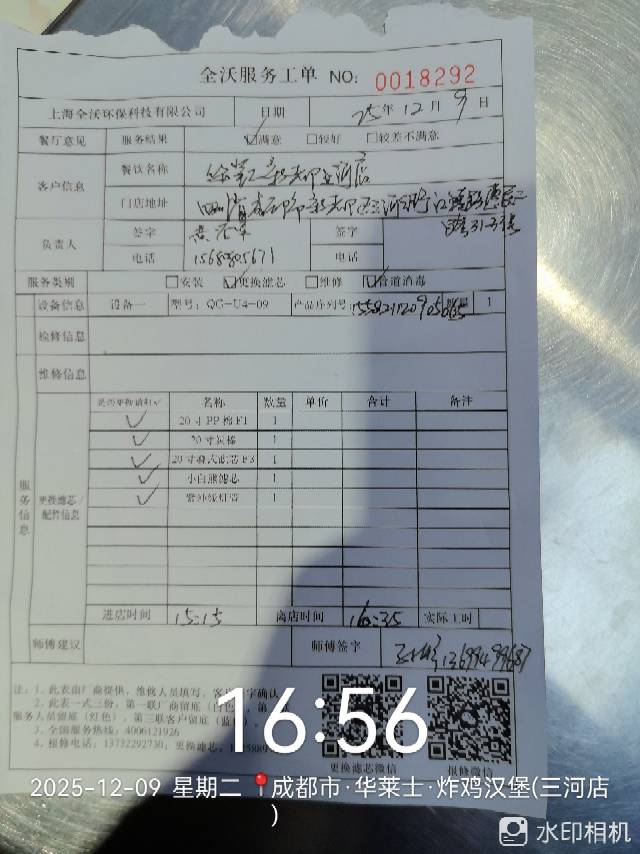 全沃服务工单 NO: 0018292
上海全沃环保科技有限公司 日期 25年12月9日
餐厅意见 服务结果 ☑满意 □较好 □较差不满意
客户信息 餐饮名称
门店地址
负责人 签字 签字
电话 电话
服务类别 □安装 ☑更换滤芯 □维修 ☑管道消毒
设备信息 设备一 型号: QG-U4-09 产品序列号 数量 1
检修信息
维修信息
服务信息 更换滤芯/配件信息 名称 数量 单价 合计 备注
✓ 20寸PP棉F1 1
✓ 20寸炭棒 1
✓ 1
✓ 小白熊滤芯 1
✓ 紫外线灯管 1
进店时间 15:15 离店时间 16:35 实际工时
师傅建议 师傅签字
注: 1、此表由厂商提供,维修人员填写,客户签字确认
2、此表一式三份,第一联厂商留底
服务人员留底(红色),第三联客户留底
3、全国服务热线: 4006121926
4、报修电话: 13732292730; 更换滤芯
更换滤芯微信 报修微信
16:56
2025-12-09 星期二 成都市·华莱士·炸鸡汉堡(三河店)
水印相机